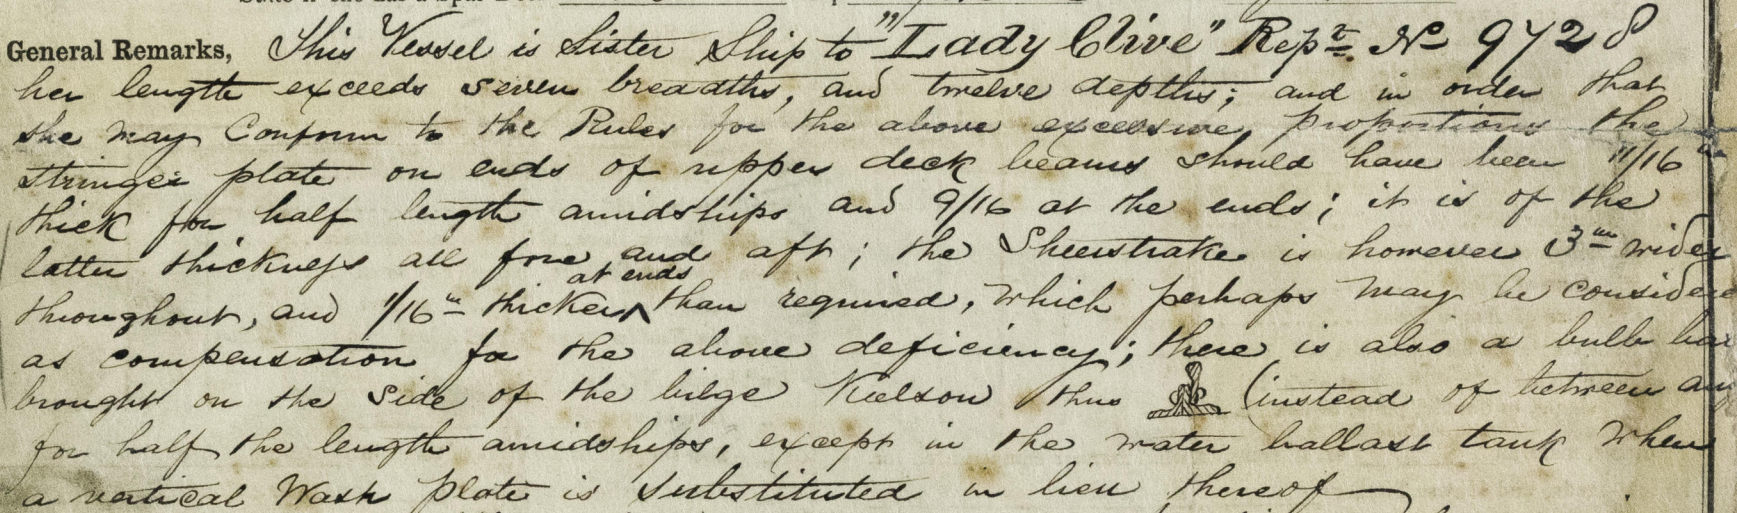 General Remarks, This Vessel is Sister Ship to "Lady Clive" Repr. No 9728
her length exceeds seven breadths, and twelve depths; and in order that
she may Conform to the Rules for the above excessive proportions the
stringer plate on ends of upper deck beams should have been 11/16 in
thick for half length amidships and 9/16 at the ends; it is of the
latter thickness all fore and aft; the Sheerstrake is however 3 in wider
throughout, and 1/16 in thicker at ends than required, which perhaps may be considere
as compensation for the above deficiency; there is also a bulb bar
brought on the side of the bilge Keelson thus (instead of between an
for half the length amidships, except in the water ballast tank when
a vertical Wash plate is substituted in lieu thereof